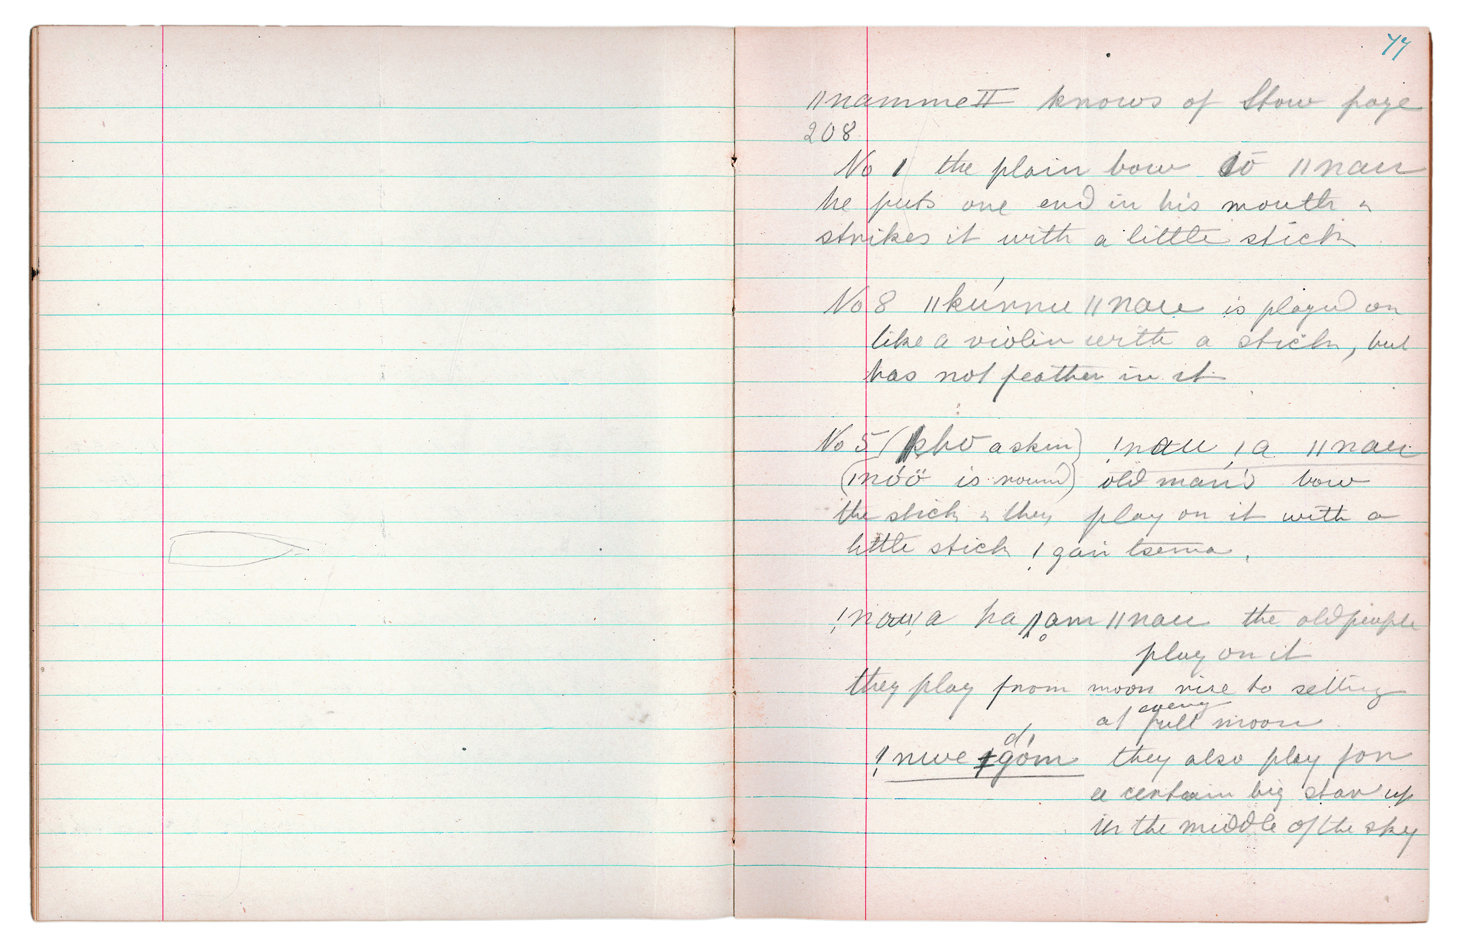 77
ǁnammeII knows of Stow page
208
No 1 the plain bow ǁnau
he puts one end in his mouth &
strikes it with a little stick
No 8 ǁkúnnu ǁnau is played on
like a violin with a stick, but
has not feather in it
No 5 (kho a skin) !nau !a ǁnau
(ǀnóö is round) old man's bow
the stick & they play on it with a
little stick ! gai tsema.
!nau!a ha ǁam ǁnau the old people
play on it
they play from moon rise to setting
at every full moon
!nwe góm they also play for
a certain big star up
in the middle of the sky